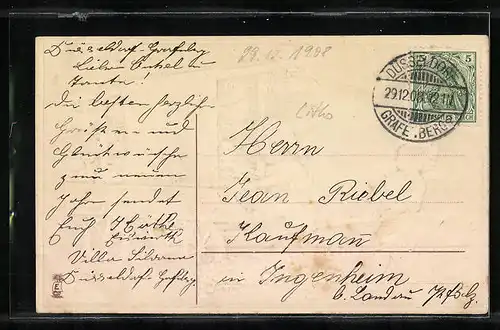 Düsseldorf-Grafenbg
Lieber Onkel u
Tante!
Die besten herzlichen
Grüße und
Glückwünsche
zum neuen
Jahr sendet
Euch Käthe
Villa
Düsseldorf
29.12.1908
Litho
5
DÜSSELDORF
29.12.08
GRAFENBERG
Herrn
Jean Riebel
Kaufmann
in Ingenheim
b. Landau Pfalz